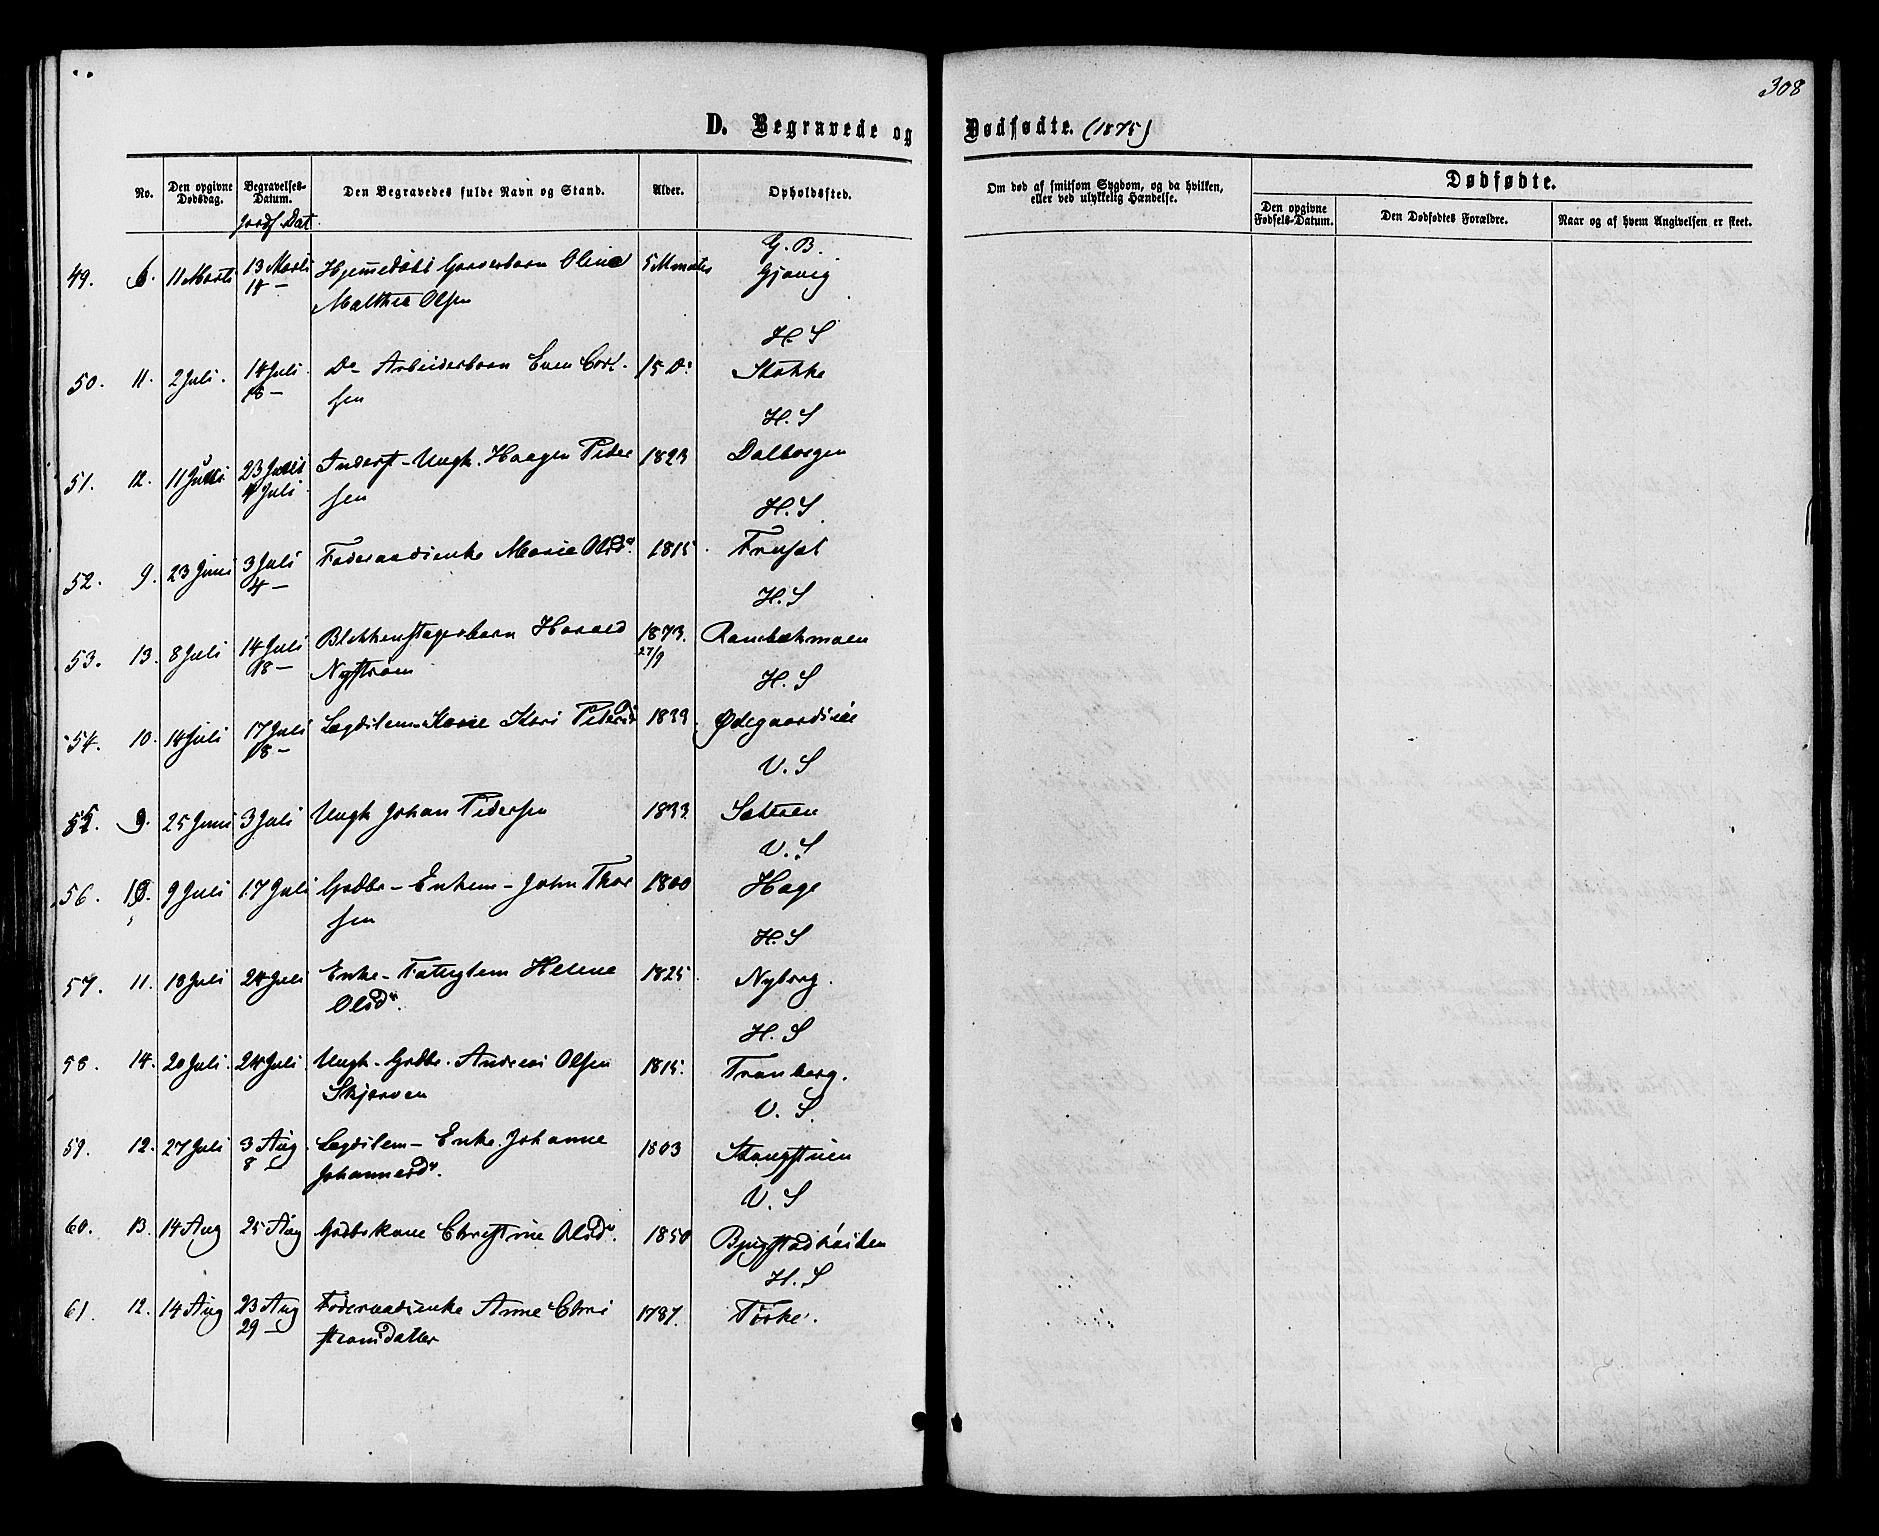 308
D. Begravede og Dødfødte. (1875)
No. Den opgivne Dødsdag. Begravelses-Datum. Den Begravedes fulde Navn og Stand. Alder. Opholdssted. Om død af smitsom Sygdom, og da hvilken, eller ved ulykkelig Hændelse. Dødfødte.
Den opgivne Fødsels-Datum. Den Dødfødtes Forældre. Naar og af hvem Angivelsen er skeet.
Jordf. Dat.
G. B.
49. 6. 11 Marts 13 Marts Hjemmedøbt Garverbarn Oline 5 Maaneder Gjøvig
18 — Malthea Olsen
H. S
50. 11. 2 Juli. 14 Juli Do Arbeiderbarn Even Carl- 15 D. Stokke
18 — sen
H. S
51. 12. 11 Juli 23 Juni Inderst-Ungk. Haagen Peder 1823 Dalborgen
4 Juli sen
H. S
52. 9. 23 Juni 3 Juli Føderaadsenke Marie Olsdr. 1815 Frusæt
4 —
H. S
53. 13. 8 Juli 14 Juli Blikkenslagerbarn Harald 1873. Rambækmoen
18 — Nystrøm 27/9
H. S
54. 10. 14 Juli 17 Juli Lægdslem-Kone Kari Pedersdr 1833 Ødegaardseie
18 —
V. S
55. 9. 25 Juni 3 Juli Ungk Johan Pedersen 1833 Sæteren
V. S
56. 10. 9 Juli 17 Juli Grdbr - Enkem - John Thor 1800 Hage
sen
H. S
57. 11. 18 Juli 24 Juli Enke - Fattiglem Helene 1825 Nyborg.
Olsdr.
H. S
58. 14. 20 Juli. 24 Juli Ungk - Grdbr. Andreas Olsen 1815. Tranberg.
Skjerven
V. S.
59. 12. 27 Juli 3 Aug Lægdslem - Enke. Johanne 1803 Stangstuen
8 — Johannesdr.
V. S
60. 13. 14 Aug 25 Aug Grdbrkone Christine Olsdr. 1850 Bjugstadhøiden
H. S
61. 12. 14 Aug 23 Aug Føderaadsenke Anne Chri 1787. Tørke.
29 — stiansdatter